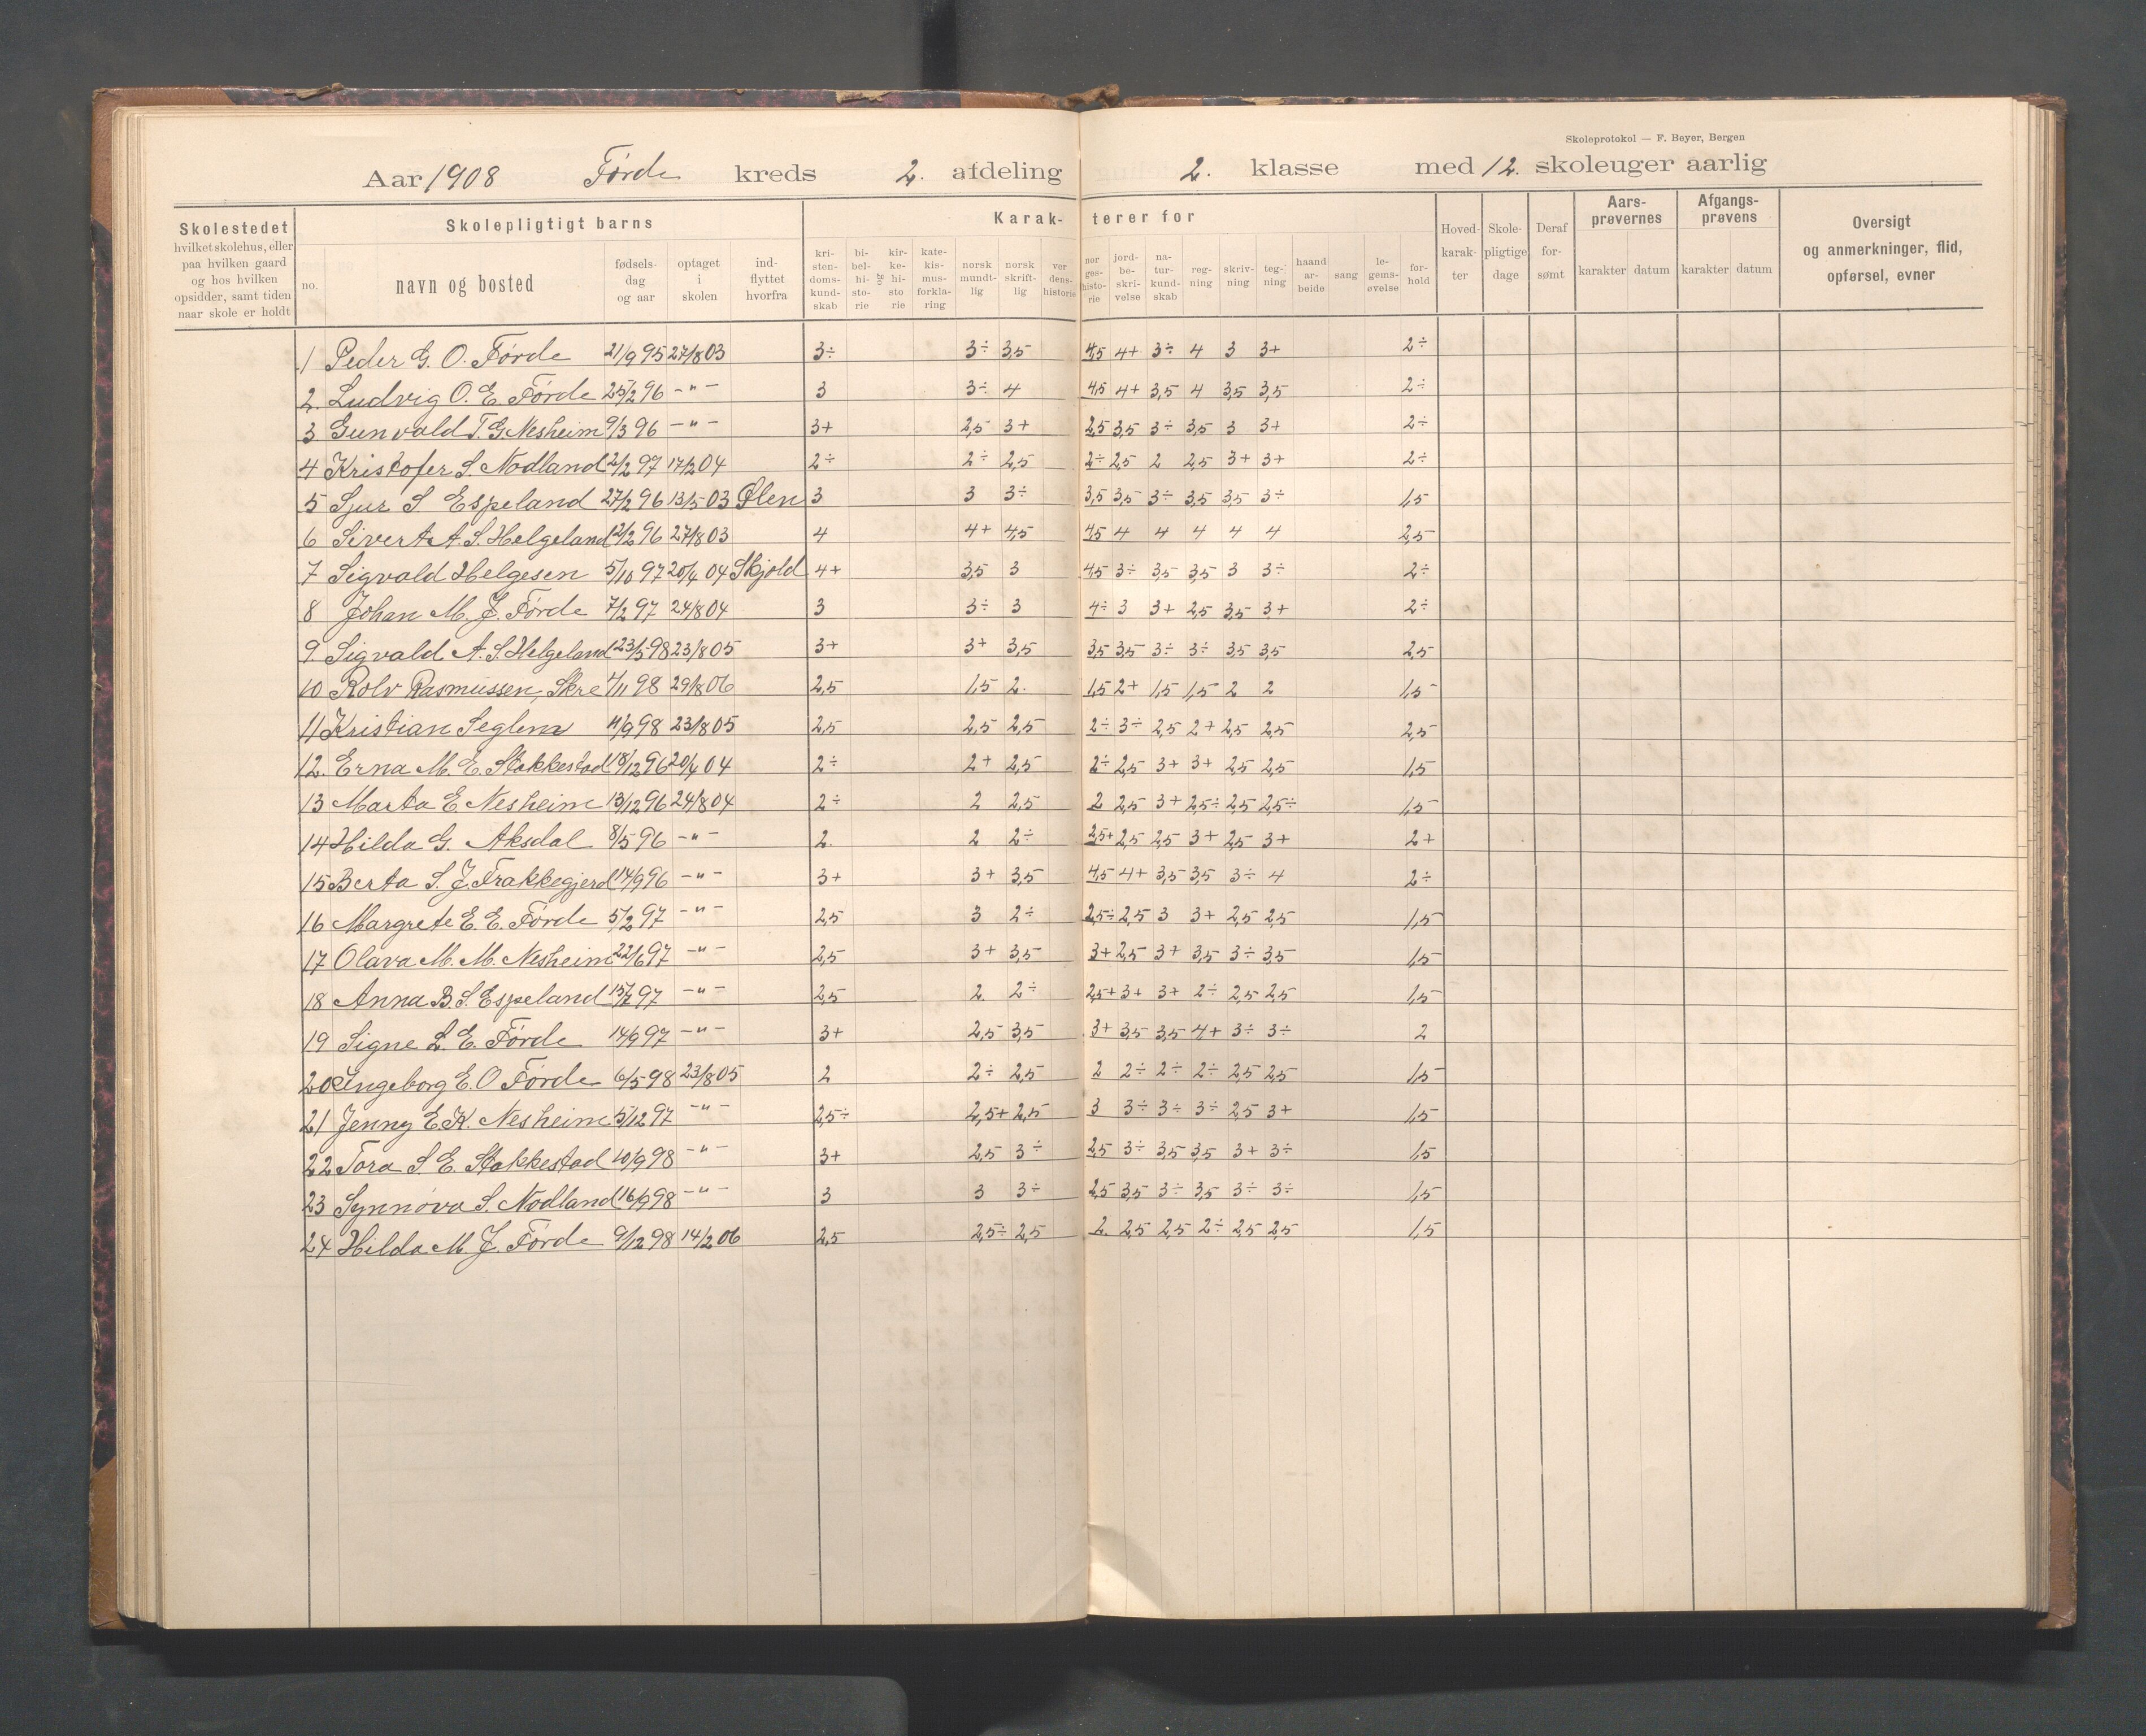 Skoleprotokol — F. Beyer, Bergen
Aar 1908 Førde kreds 2. afdeling 2. klasse med 12. skoleuger aarlig
Skolestedet hvilket skolehus, eller paa hvilken gaard og hos hvilken opsidder, samt tiden naar skole er holdt
Skolepligtigt barns
no. navn og bosted fødselsdag og aar optaget i skolen indflyttet hvorfra
Karakterer for
kristendomskundskab bibelhistorie og kirkehistorie katekismusforklaring norsk mundtlig norsk skriftlig verdenshistorie norgeshistorie jordbeskrivelse naturkundskab regning skrivning tegning haandarbeide sang legemsøvelse forhold
Hovedkarakter Skolepligtige dage Deraf forsømt
Aarsprøvernes karakter datum
Afgangsprøvens karakter datum
Oversigt og anmerkninger, flid, opførsel, evner
1 Peder G. O. Førde 21/9 95 27/8 03 3÷ 3÷ 3,5 4,5 4+ 3÷ 4 3 3+ 2÷
2. Ludvig O. E. Førde 25/2 96 –„– 3 3÷ 4 4,5 4+ 3,5 4 3,5 3,5 2÷
3 Gunvald T. G Nesheim 9/3 96 –„– 3+ 2,5 3+ 2,5 3,5 3÷ 3,5 3 3+ 2÷
4 Kristofer S. Nodland 2/2 97 17/2 04 2÷ 2÷ 2,5 2÷ 2,5 2 2,5 3+ 3+ 2÷
5 Sjur S Espeland 27/2 96 13/5 03 Ølen 3 3 3÷ 3,5 3,5 3÷ 3,5 3,5 3÷ 1,5
6 Sivert A. S. Helgeland 12/2 96 27/8 03 4 4+ 4,5 4,5 4 4 4 4 4 2,5
7 Sigvald Helgesen 5/10 97 20/4 04 Skjold 4+ 3,5 3 4,5 3÷ 3,5 3,5 3 3÷ 2÷
8 Johan M. J. Førde 7/2 97 24/8 04 3 3÷ 3 4÷ 3 3+ 2,5 3,5 3+ 2÷
9. Sigvald A. S. Helgeland 23/5 98 23/8 05 3+ 3+ 3,5 3,5 3,5 3÷ 3÷ 3,5 3,5 2,5
10 Rolv Rasmussen, Skre 7/11 98 29/8 06 2,5 1,5 2. 1,5 2+ 1,5 1,5 2 2 1,5
11 Kristian Seglem 11/9 98 23/8 05 2,5 2,5 2,5 2÷ 3÷ 2,5 2+ 2,5 2,5 2,5
12. Erna M. E. Stakkestad 18/12 96 20/4 04 2÷ 2+ 2,5 2÷ 2,5 3+ 3+ 2,5 2,5 1,5
13 Marta E Nesheim 13/12 96 24/8 04 2÷ 2 2,5 2 2,5 3+ 2,5÷ 2,5 2,5÷ 1,5
14 Hilda G. Aksdal 8/5 96 –„– 2. 2 2÷ 2,5+ 2,5 2,5 3+ 2,5 3+ 2+
15 Berta S. J. Frakkegjerd 14/9 96 –„– 3+ 3+ 3,5 4,5 4+ 3,5 3,5 3÷ 4 2÷
16 Margrete E. E. Førde 5/2 97 –„– 2,5 3 2÷ 2,5÷ 2,5 3 3+ 2,5 2,5 1,5
17 Olava M. M. Nesheim 22/6 97 –„– 2,5 3+ 3,5 3+ 2,5 3+ 3,5 3÷ 3,5 1,5
18 Anna B. S. Espeland 15/7 97 –„– 2,5 2. 2÷ 2,5+ 3+ 3+ 2÷ 2,5 2,5 1,5
19 Signe L. E. Førde 14/9 97 –„– 3+ 2,5 3,5 3+ 3,5 3,5 4+ 3÷ 3÷ 2
20 Ingeborg E. O Førde 6/5 98 23/8 05 2 2÷ 2,5 2 2÷ 2÷ 2÷ 2,5 2,5 1,5
21 Jenny E K. Nesheim 5/12 97 –„– 2,5÷ 2,5+ 2,5 3 3÷ 3÷ 3÷ 2,5 3+ 1,5
22 Tora S E. Stakkestad 10/9 98 –„– 3+ 2,5 3÷ 2,5 3÷ 3,5 3,5 3+ 3÷ 1,5
23 Synnøva S. Nodland 16/9 98 –„– 3 3 3÷ 2,5 3,5 3÷ 3,5 3÷ 3÷ 1,5
24 Hilda M. J. Førde 9/12 98 14/2 06 2,5 2,5÷ 2,5 2. 2,5 2,5 2÷ 2,5 2,5 1,5